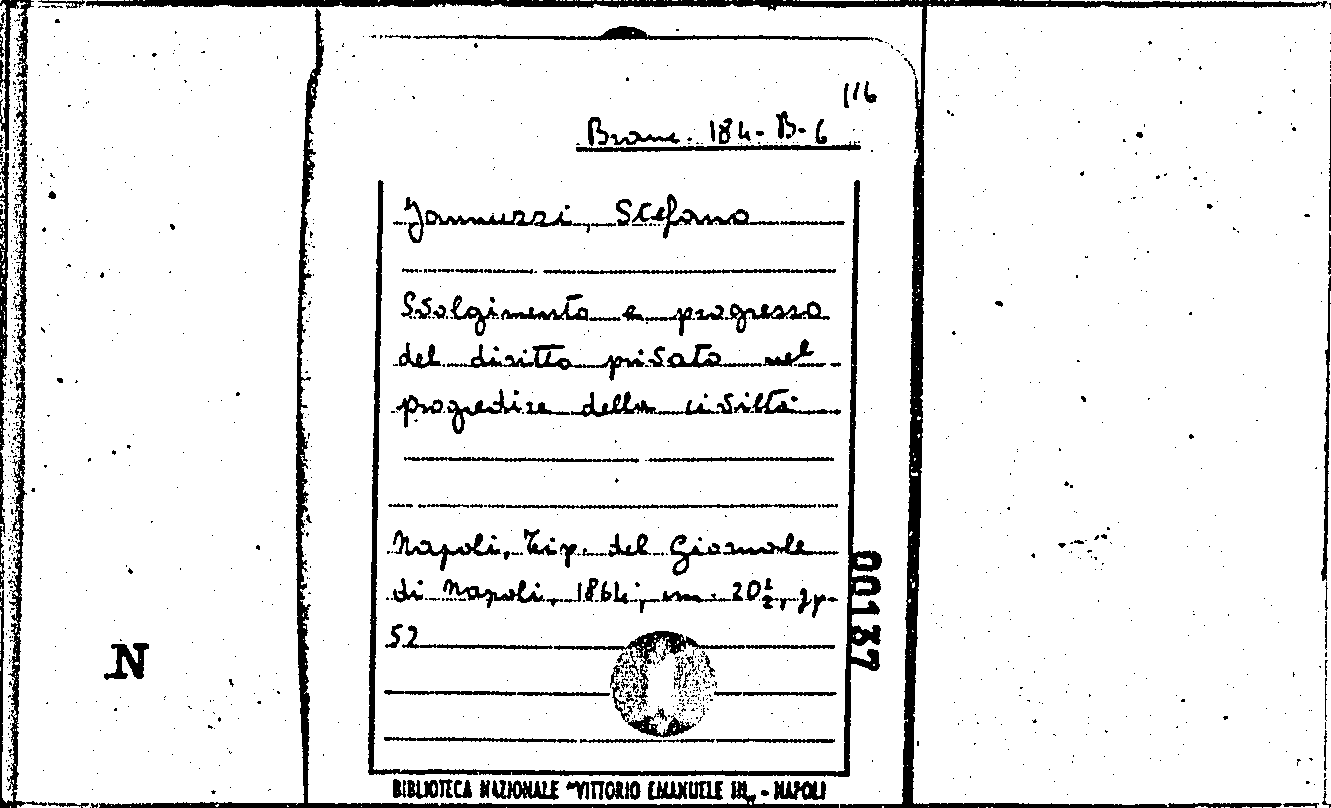 116
Branc. 184-B-6
Jannuzzi, Stefano
Svolgimento e progresso
del diritto privato nel
progredire della civiltà
Napoli, Tip. del Giornale
di Napoli, 1864; cm. 20½, pp.
52
00137
N
BIBLIOTECA NAZIONALE "VITTORIO EMANUELE III" - NAPOLI